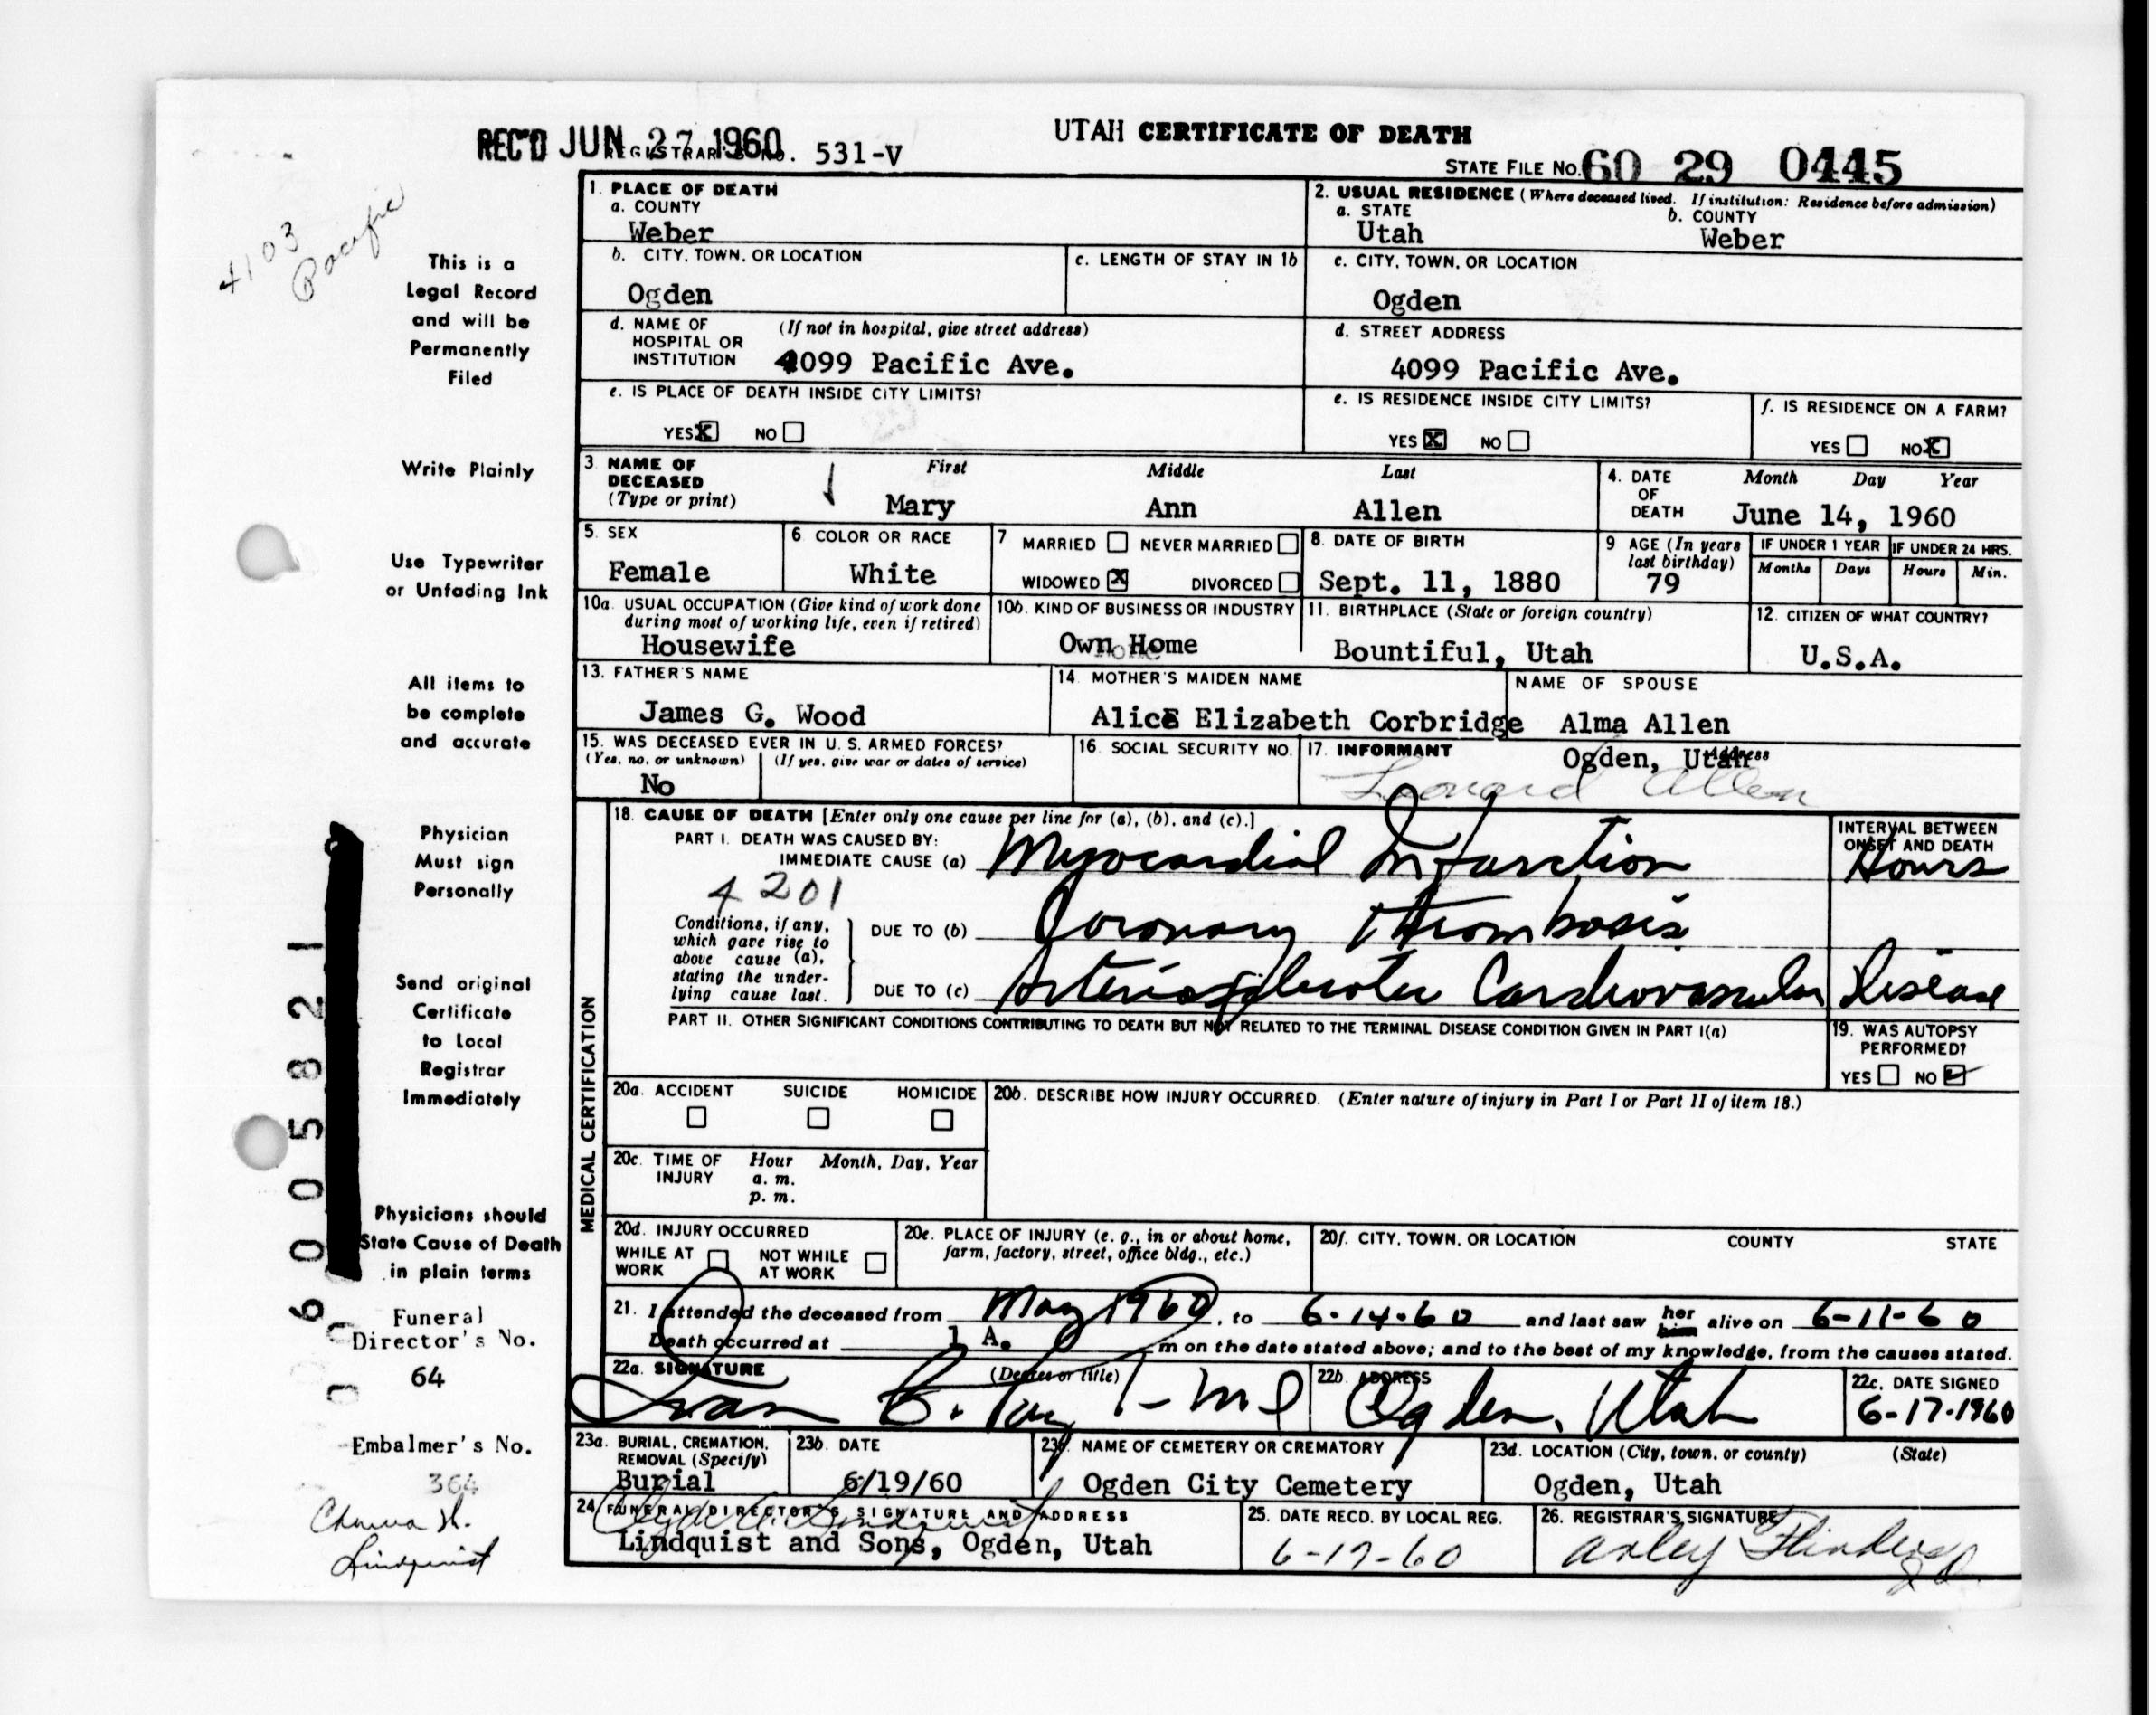 UTAH CERTIFICATE OF DEATH
REC'D JUN 27 1960
REGISTRAR'S NO. 531-V
STATE FILE NO. 60 29 0445
4103
Pacific
This is a
Legal Record
and will be
Permanently
Filed
Write Plainly
Use Typewriter
or Unfading Ink
All items to
be complete
and accurate
Physician
Must sign
Personally
Send original
Certificate
to Local
Registrar
Immediately
Physicians should
State Cause of Death
in plain terms
Funeral
Director's No.
64
Embalmer's No.
364
Lindquist
60005821
1. PLACE OF DEATH
a. COUNTY
Weber
2. USUAL RESIDENCE (Where deceased lived. If institution: Residence before admission)
a. STATE
Utah
b. COUNTY
Weber
b. CITY, TOWN, OR LOCATION
Ogden
c. LENGTH OF STAY IN 1b
c. CITY, TOWN, OR LOCATION
Ogden
d. NAME OF HOSPITAL OR INSTITUTION (If not in hospital, give street address)
4099 Pacific Ave.
d. STREET ADDRESS
4099 Pacific Ave.
e. IS PLACE OF DEATH INSIDE CITY LIMITS?
YES X NO
e. IS RESIDENCE INSIDE CITY LIMITS?
YES X NO
f. IS RESIDENCE ON A FARM?
YES NO X
3. NAME OF DECEASED (Type or print)
First Middle Last
Mary Ann Allen
4. DATE OF DEATH Month Day Year
June 14, 1960
5. SEX
Female
6 COLOR OR RACE
White
7 MARRIED NEVER MARRIED
WIDOWED X DIVORCED
8. DATE OF BIRTH
Sept. 11, 1880
9 AGE (In years last birthday)
79
IF UNDER 1 YEAR
Months Days
IF UNDER 24 HRS.
Hours Min.
10a. USUAL OCCUPATION (Give kind of work done during most of working life, even if retired)
Housewife
10b. KIND OF BUSINESS OR INDUSTRY
Own Home
none
11. BIRTHPLACE (State or foreign country)
Bountiful, Utah
12. CITIZEN OF WHAT COUNTRY?
U.S.A.
13. FATHER'S NAME
James G. Wood
14. MOTHER'S MAIDEN NAME
Alice Elizabeth Corbridge
NAME OF SPOUSE
Alma Allen
15. WAS DECEASED EVER IN U. S. ARMED FORCES?
(Yes, no, or unknown) (If yes, give war or dates of service)
No
16. SOCIAL SECURITY NO.
17. INFORMANT Address
Ogden, Utah
Leonard Allen
MEDICAL CERTIFICATION
18. CAUSE OF DEATH [Enter only one cause per line for (a), (b), and (c).]
PART I. DEATH WAS CAUSED BY:
IMMEDIATE CAUSE (a) Myocardial Infarction
INTERVAL BETWEEN ONSET AND DEATH
Hours
4201
Conditions, if any, which gave rise to above cause (a), stating the underlying cause last.
DUE TO (b) Coronary Thrombosis
DUE TO (c) Arteriosclerotic Cardiovascular Disease
PART II. OTHER SIGNIFICANT CONDITIONS CONTRIBUTING TO DEATH BUT NOT RELATED TO THE TERMINAL DISEASE CONDITION GIVEN IN PART I(a)
19. WAS AUTOPSY PERFORMED?
YES NO
20a. ACCIDENT SUICIDE HOMICIDE
20b. DESCRIBE HOW INJURY OCCURRED. (Enter nature of injury in Part I or Part II of item 18.)
20c. TIME OF INJURY Hour Month, Day, Year
a. m.
p. m.
20d. INJURY OCCURRED
WHILE AT WORK NOT WHILE AT WORK
20e. PLACE OF INJURY (e. g., in or about home, farm, factory, street, office bldg., etc.)
20f. CITY, TOWN, OR LOCATION COUNTY STATE
21. I attended the deceased from May 1960, to 6-14-60 and last saw her him alive on 6-11-60
Death occurred at 1 A. m on the date stated above; and to the best of my knowledge, from the causes stated.
22a. SIGNATURE (Degree or title)
22b. ADDRESS
Ogden, Utah
22c. DATE SIGNED
6-17-1960
23a. BURIAL, CREMATION, REMOVAL (Specify)
Burial
23b. DATE
6/19/60
23c. NAME OF CEMETERY OR CREMATORY
Ogden City Cemetery
23d. LOCATION (City, town, or county) (State)
Ogden, Utah
24 FUNERAL DIRECTOR'S SIGNATURE AND ADDRESS
Lindquist and Sons, Ogden, Utah
25. DATE RECD. BY LOCAL REG.
6-17-60
26. REGISTRAR'S SIGNATURE
Arley Flinders